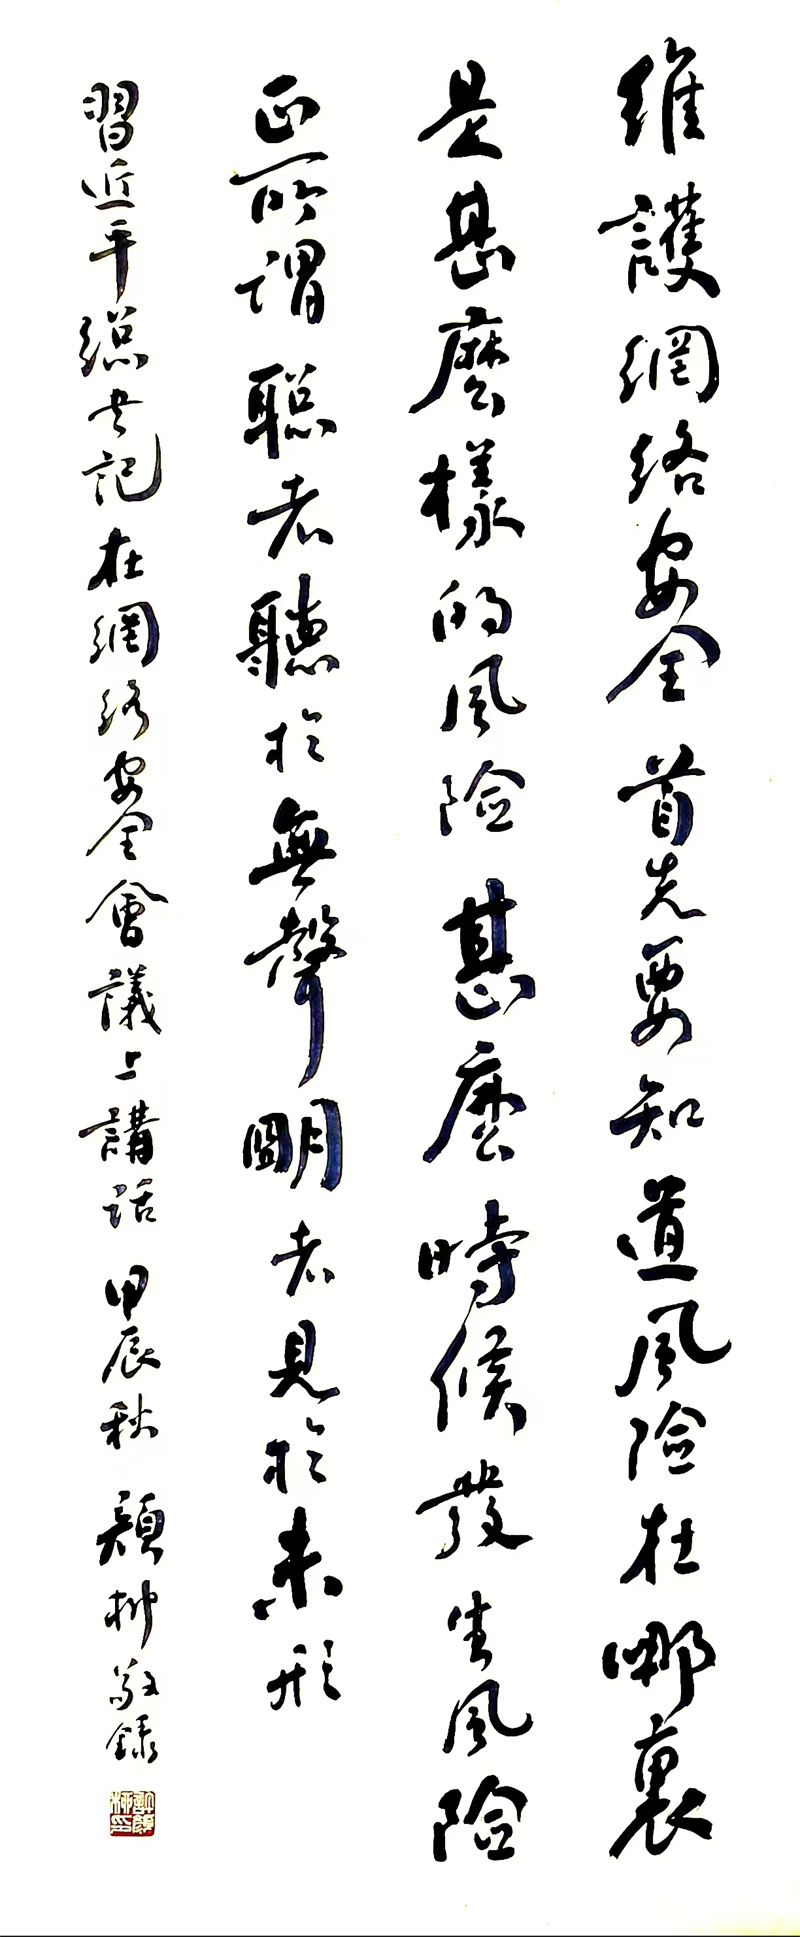 維護網絡安全首先要知道風險在哪裏
是甚麼樣的風險甚麼時候發生風險
正所謂聰者聽於無聲明者見於未形
習近平總書記在網絡安全會議上講話甲辰秋柳敬錄